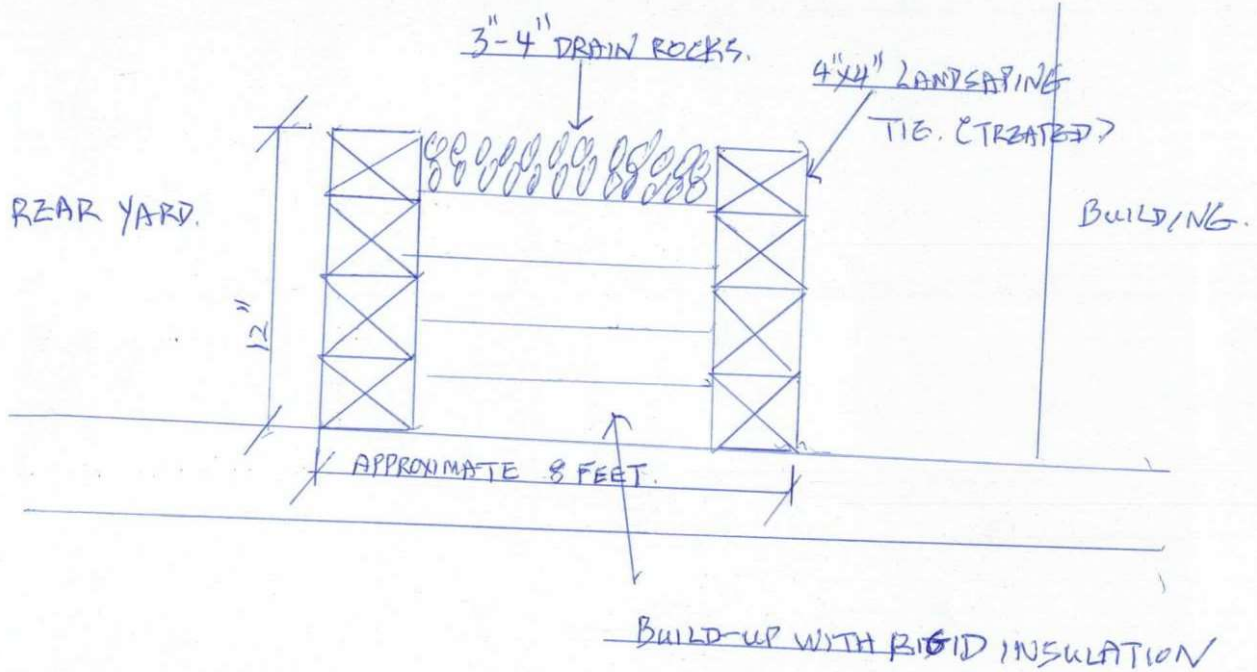 3"-4" DRAIN ROCKS.
4"x4" LANDSAPING
TIE. (TREATED)
REAR YARD.
BUILDING.
12"
APPROXIMATE 8 FEET.
BUILD-UP WITH RIGID INSULATION